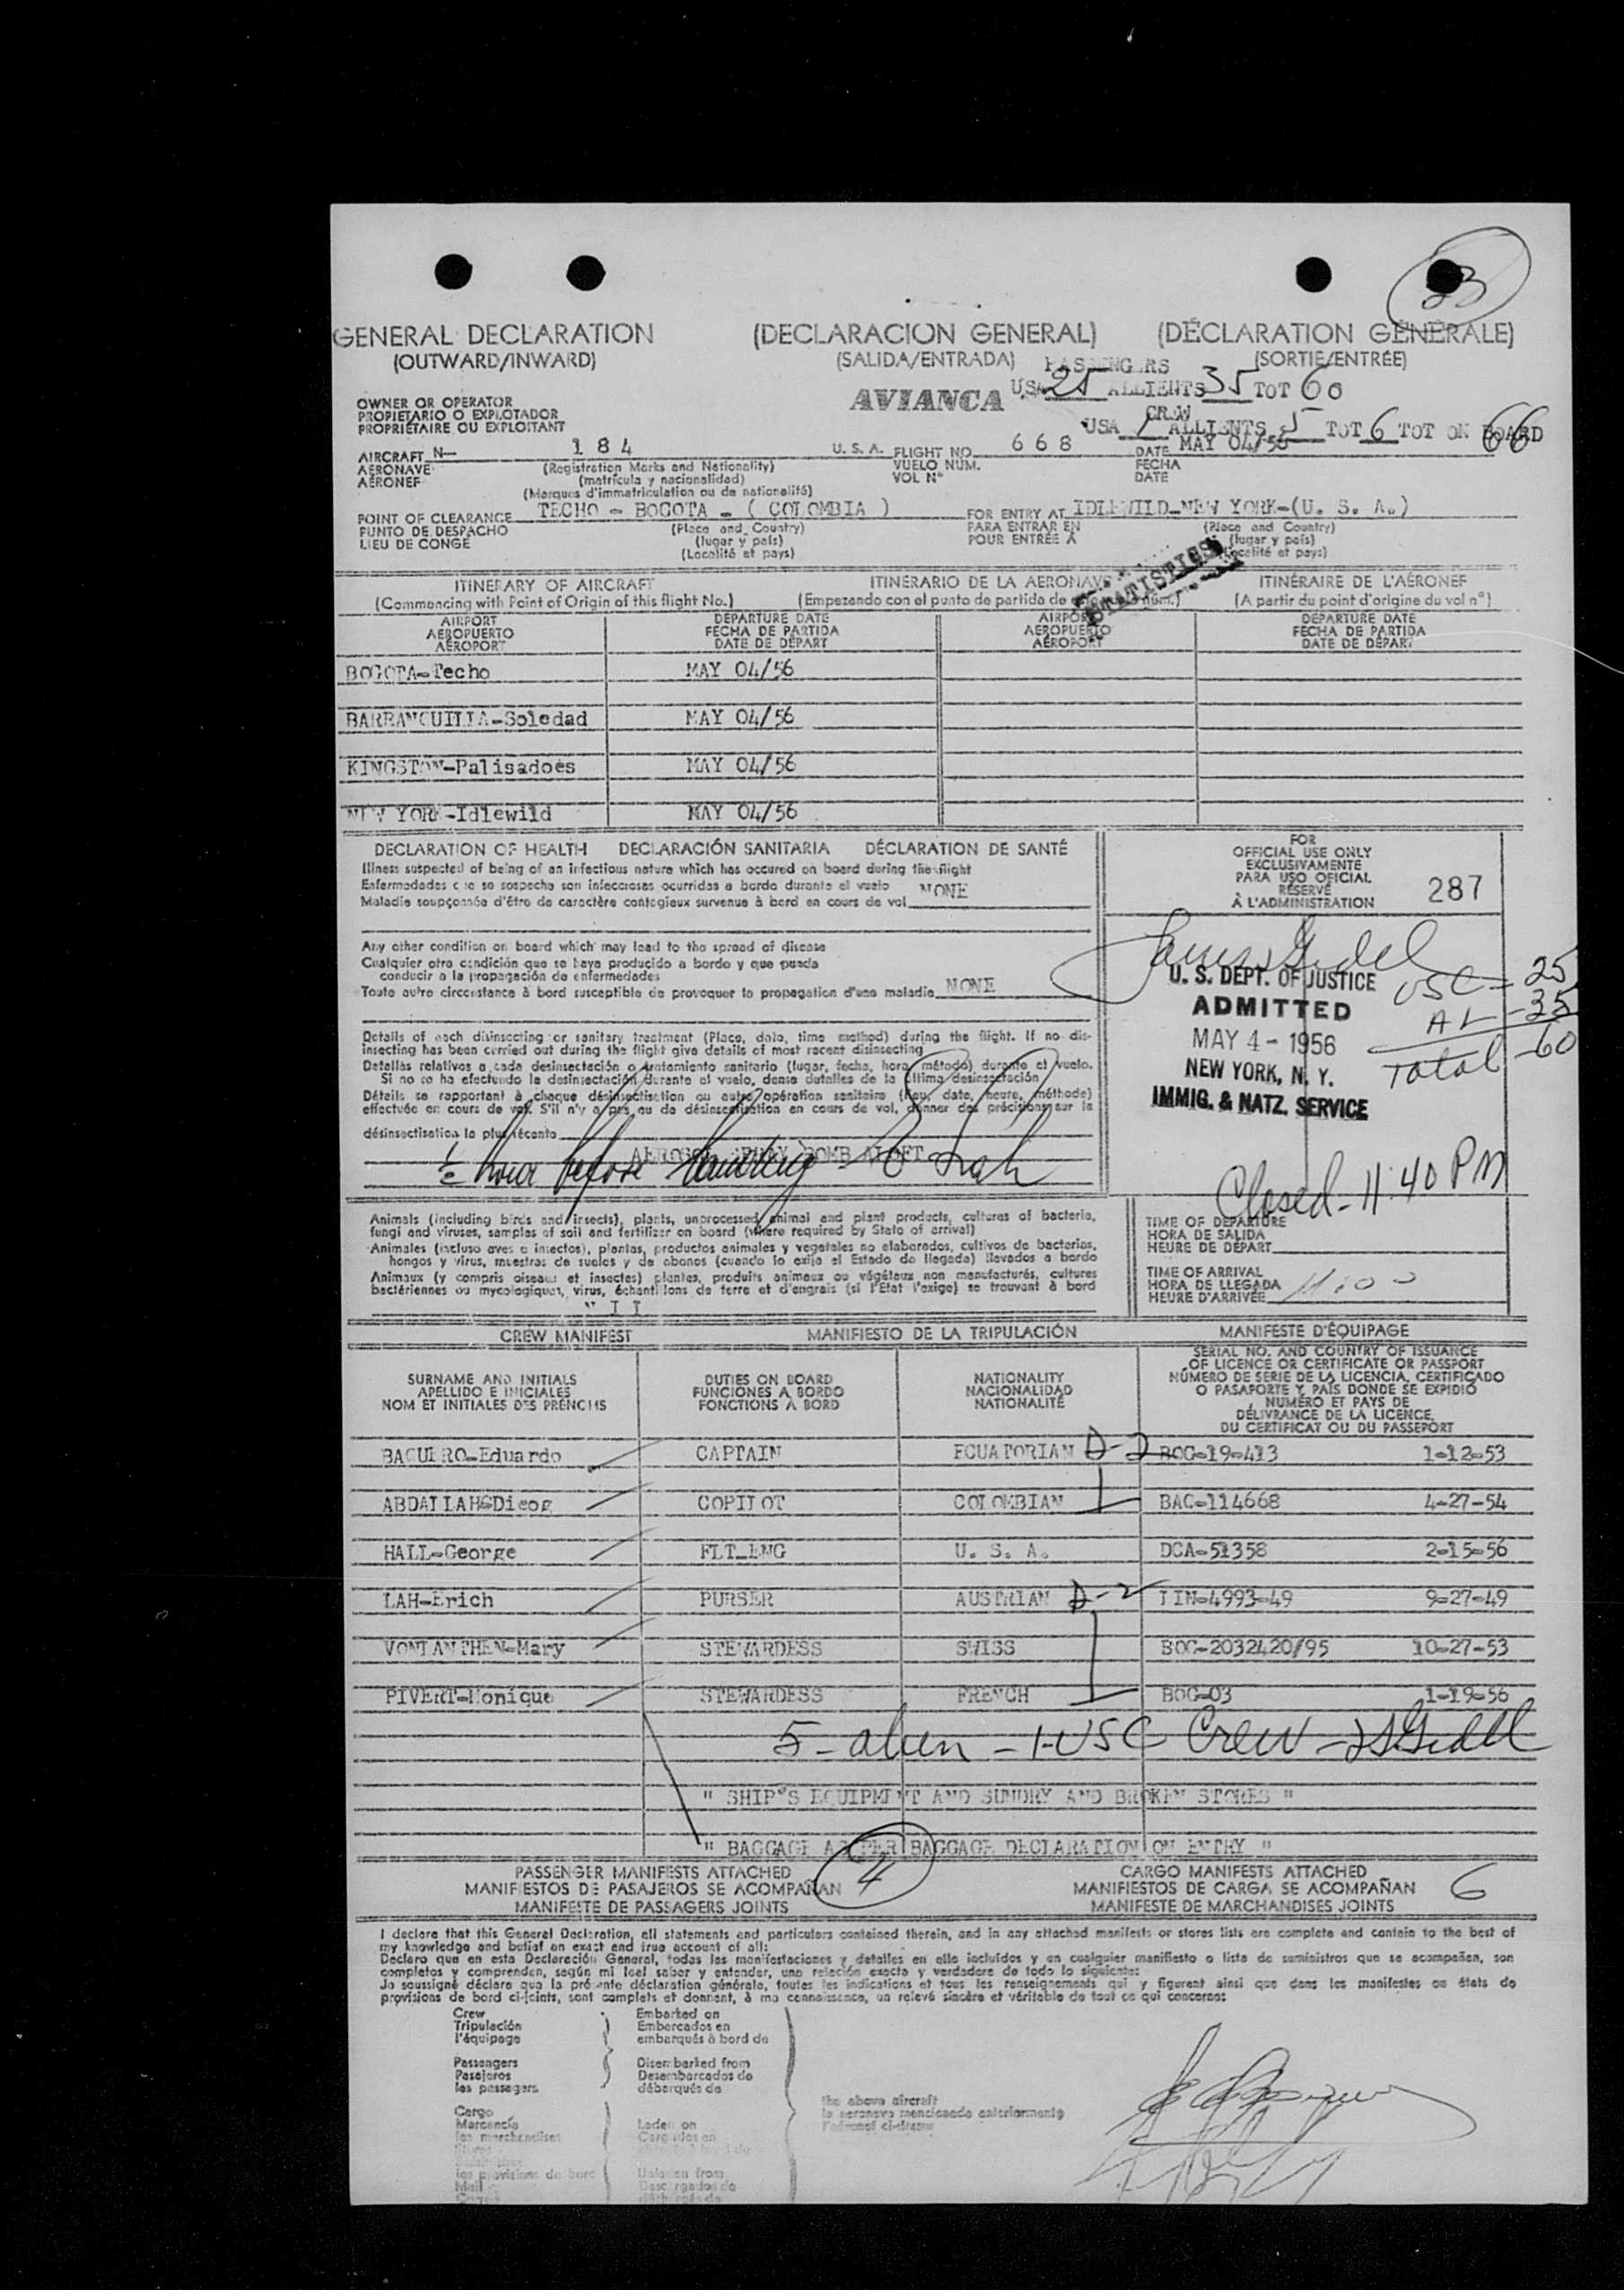 33
GENERAL DECLARATION (DECLARACION GENERAL) (DÉCLARATION GÉNÉRALE)
(OUTWARD/INWARD) (SALIDA/ENTRADA) (SORTIE/ENTRÉE)
PASSENGERS
USA 25 ALLIENTS 35 TOT 60
OWNER OR OPERATOR
PROPIETARIO O EXPLOTADOR
PROPRIÉTAIRE OU EXPLOITANT
AVIANCA
CREW
USA 1 ALLIENTS 5 TOT 6 TOT ON BOARD 66
AIRCRAFT N- 184 U. S. A. FLIGHT NO. 668 DATE MAY 04/56
AERONAVE (Registration Marks and Nationality) VUELO NÚM. FECHA
AÉRONEF (matrícula y nacionalidad) VOL N° DATE
(Marques d'immatriculation ou de nationalité)
POINT OF CLEARANCE TECHO - BOGOTA - ( COLOMBIA ) FOR ENTRY AT IDLEWILD-NEW YORK-(U. S. A.)
PUNTO DE DESPACHO (Place and Country) PARA ENTRAR EN (Place and Country)
LIEU DE CONGÉ (lugar y país) POUR ENTRÉE À (lugar y país)
(Localité et pays) (Localité et pays)
STATISTICS
ITINERARY OF AIRCRAFT ITINERARIO DE LA AERONAVE ITINÉRAIRE DE L'AÉRONEF
(Commencing with Point of Origin of this flight No.) (Empezando con el punto de partida de núm.) (A partir du point d'origine du vol n°)
AIRPORT DEPARTURE DATE AIRPORT DEPARTURE DATE
AEROPUERTO FECHA DE PARTIDA AEROPUERTO FECHA DE PARTIDA
AÉROPORT DATE DE DÉPART AÉROPORT DATE DE DÉPART
BOGOTA-Techo MAY 04/56
BARRANQUILLA-Soledad MAY 04/56
KINGSTON-Palisadoes MAY 04/56
NEW YORK-Idlewild MAY 04/56
DECLARATION OF HEALTH DECLARACIÓN SANITARIA DÉCLARATION DE SANTÉ
Illness suspected of being of an infectious nature which has occured on board during the flight
Enfermedades que se sospecha son infecciosas ocurridas a bordo durante el vuelo NONE
Maladie soupçonnée d'être de caractère contagieux survenue à bord en cours de vol
Any other condition on board which may lead to the spread of disease
Cualquier otra condición que se haya producido a bordo y que pueda
conducir a la propagación de enfermedades
Toute autre circonstance à bord susceptible de provoquer la propagation d'une maladie NONE
Details of each disinsecting or sanitary treatment (Place, date, time method) during the flight. If no dis-
insecting has been carried out during the flight give details of most recent disinsecting
Detalles relativos a cada desinsectación o tratamiento sanitario (lugar, fecha, hora, método) durante el vuelo.
Si no se ha efectuado la desinsectación durante el vuelo, dense detalles de la última desinsectación
Détails se rapportant à chaque désinsectisation ou autre opération sanitaire (lieu, date, heure, méthode)
effectuée en cours de vol. S'il n'y a pas eu de désinsectisation en cours de vol, donner des précisions sur la
désinsectisation la plus récente
AEROSOL SPRAY BOMB ALOFT
1/2 hour before landing
FOR
OFFICIAL USE ONLY
EXCLUSIVAMENTE
PARA USO OFICIAL
RÉSERVÉ
À L'ADMINISTRATION
287
U. S. DEPT. OF JUSTICE
ADMITTED
MAY 4 - 1956
NEW YORK, N. Y.
IMMIG. & NATZ. SERVICE
USC - 25
AL - 35
Total - 60
Closed - 11:40 PM
Animals (including birds and insects), plants, unprocessed animal and plant products, cultures of bacteria,
fungi and viruses, samples of soil and fertilizer on board (where required by State of arrival)
Animales (incluso aves e insectos), plantas, productos animales y vegetales no elaborados, cultivos de bacterias,
hongos y virus, muestras de suelos y de abonos (cuando lo exija el Estado de llegada) llevados a bordo
Animaux (y compris oiseaux et insectes) plantes, produits animaux ou végétaux non manufacturés, cultures
bactériennes ou mycologiques, virus, échantillons de terre et d'engrais (si l'Etat l'exige) se trouvant à bord
N I I
TIME OF DEPARTURE
HORA DE SALIDA
HEURE DE DÉPART
TIME OF ARRIVAL
HORA DE LLEGADA
HEURE D'ARRIVÉE 11:00
CREW MANIFEST MANIFIESTO DE LA TRIPULACIÓN MANIFESTE D'ÉQUIPAGE
SURNAME AND INITIALS
APELLIDO E INICIALES
NOM ET INITIALES DES PRÉNOMS
DUTIES ON BOARD
FUNCIONES A BORDO
FONCTIONS A BORD
NATIONALITY
NACIONALIDAD
NATIONALITÉ
SERIAL NO. AND COUNTRY OF ISSUANCE
OF LICENCE OR CERTIFICATE OR PASSPORT
NÚMERO DE SERIE DE LA LICENCIA, CERTIFICADO
O PASAPORTE Y PAÍS DONDE SE EXPIDIÓ
NUMÉRO ET PAYS DE
DÉLIVRANCE DE LA LICENCE,
DU CERTIFICAT OU DU PASSEPORT
BAQUERO-Eduardo CAPTAIN ECUATORIAN D-2 BOG-19-413 1-12-53
ABDALLAH-Dieog COPILOT COLOMBIAN BAC-114668 4-27-54
HALL-George FLT-ENG U. S. A. DCA-51358 2-15-56
LAH-Erich PURSER AUSTRIAN D-2 LIN-4993-49 9-27-49
VONLANTHEN-Mary STEWARDESS SWISS BOG-2032420/95 10-27-53
PIVERT-Monique STEWARDESS FRENCH BOG-03 1-19-56
5 - alien - 1-USC Crew -
" SHIP'S EQUIPMENT AND SUNDRY AND BROKEN STORES "
" BAGGAGE AS PER BAGGAGE DECLARATION ON ENTRY "
PASSENGER MANIFESTS ATTACHED CARGO MANIFESTS ATTACHED
MANIFIESTOS DE PASAJEROS SE ACOMPAÑAN 4 MANIFIESTOS DE CARGA SE ACOMPAÑAN 6
MANIFESTE DE PASSAGERS JOINTS MANIFESTE DE MARCHANDISES JOINTS
I declare that this General Declaration, all statements and particulars contained therein, and in any attached manifests or stores lists are complete and contain to the best of
my knowledge and belief an exact and true account of all:
Declaro que en esta Declaración General, todas las manifestaciones y detalles en ella incluidos y en cualquier manifiesto o lista de suministros que se acompañan, son
completos y comprenden, según mi leal saber y entender, una relación exacta y verdadera de todo lo siguiente:
Je soussigné déclare que la présente déclaration générale, toutes les indications et tous les renseignements qui y figurent ainsi que dans les manifestes ou états de
provisions de bord ci-joints, sont complets et donnent, à ma connaissance, un relevé sincère et véritable de tout ce qui concerne:
Crew Embarked on
Tripulación Embarcados en
l'équipage embarqués à bord de
Passengers Disembarked from
Pasajeros Desembarcados de
les passagers débarqués de
the above aircraft
la aeronave mencionada anteriormente
l'aéronef ci-dessus
Cargo
Mercancía Laden on
les marchandises Cargados en
les provisions de bord Unladen from
Mail Descargados de